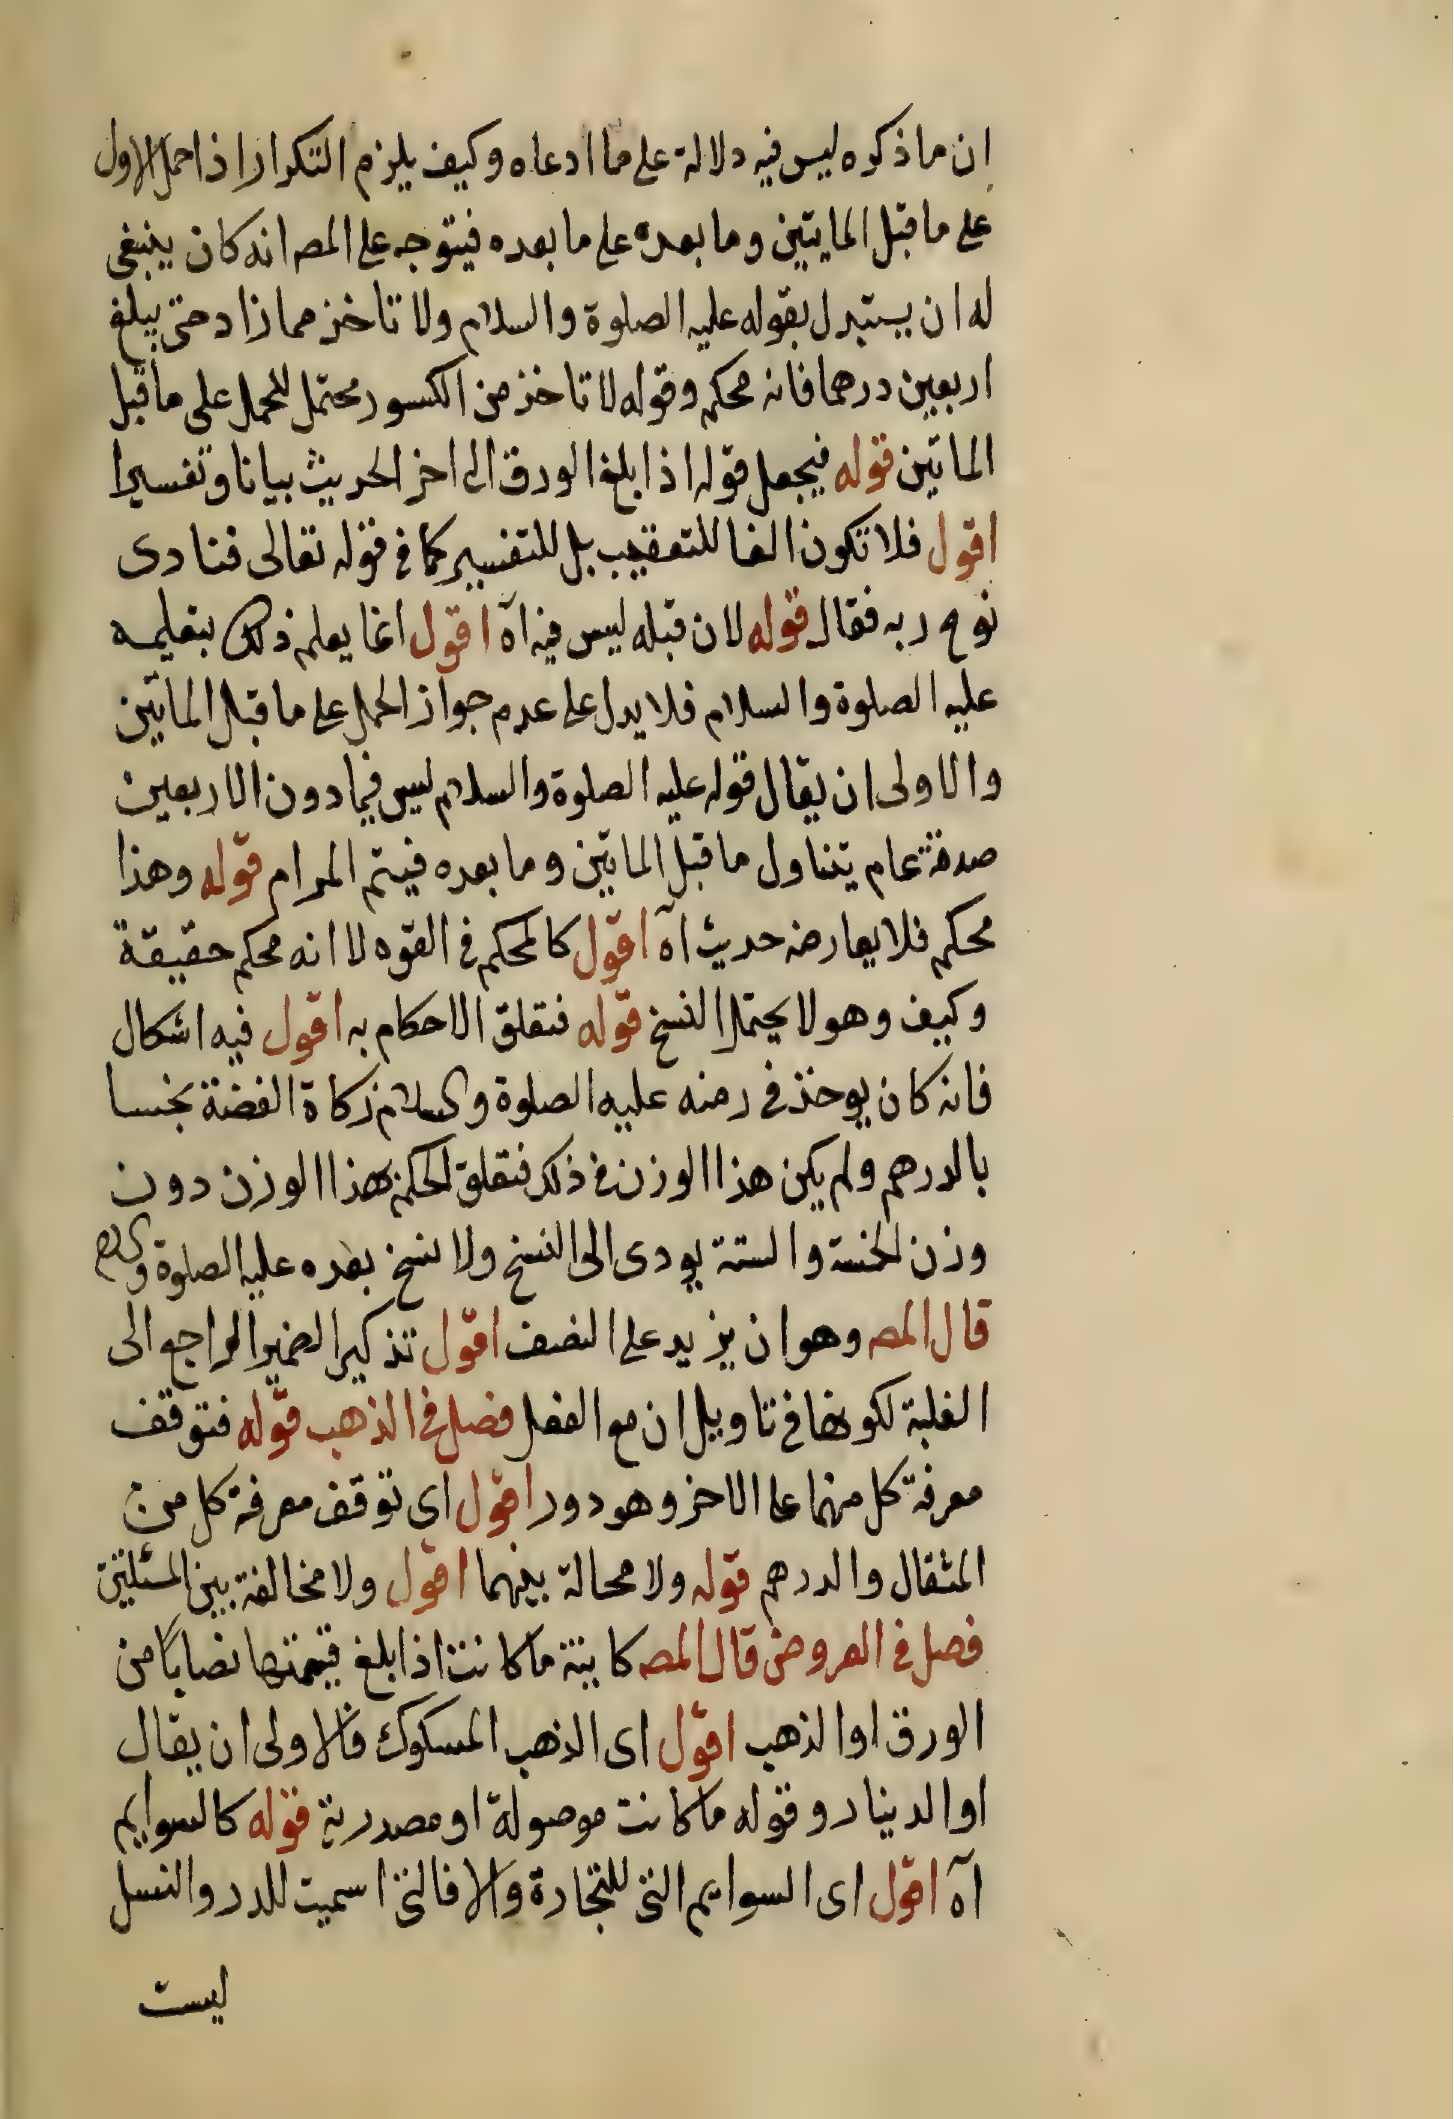 ان ما ذكره ليس فيه دلالة على ما ادعاه وكيف يلزم التكرار اذا حمل الاول
على ما قبل المايتين وما بعده على ما بعده فيتوجه على المصـ انه كان ينبغى
له ان يستبدل بقوله عليه الصلوة والسلام ولا تاخذ مما زاد حتى يبلغ
اربعين درهما فانه محكم وقوله لا تاخذ من الكسور محتمل للحمل على ما قبل
الماتين قوله فيجعل قوله اذا بلغ الورق الى اخر الحديث بيانا وتفسيرا
اقول فلا تكون الفا للتعقيب بل للتفسير كما فى قوله تعالى فنادى
نوح ربه فقال قوله لان قبله ليس فيه اه اقول انما يعلم ذلك بتعليمه
عليه الصلوة والسلام فلا يدل على عدم جواز الحمل على ما قبل الماتين
والاولى ان يقال قوله عليه الصلوة والسلام ليس فيما دون الاربعين
صدقة عام يتناول ما قبل الماتين وما بعده فيتم المرام قوله وهذا
محكم فلا يعارضه حديث آه اقول كالمحكم فى القوه لا انه محكم حقيقة
وكيف وهو لا يحتمل النسخ قوله فتعلق الاحكام به اقول فيه اشكال
فانه كان يوخذ فى زمنه عليه الصلوة والسلام زكاة الفضة بخسا
بالدرهم ولم يكن هذا الوزن فى ذلك فتعلق الحكم بهذا الوزن دون
وزن الخمسة والستة يودى الى النسخ ولا نسخ بعده عليه الصلوة والسلام
قال المصـ وهو ان يزيد على النصف اقول تذكير الضمير الراجع الى
الغلبة لكونها فى تاويل ان مع الفعل فصل فى الذهب قوله فتوقف
معرفة كل منهما على الاخر وهو دور اقول اى توقف معرفة كل من
المثقال والدرهم قوله ولا محالة بينهما اقول ولا مخالفة بين المسئلتين
فصل فى العروض قال المصـ كاينة ما كانت اذا بلغ قيمتها نصابا من
الورق او الذهب اقول اى الذهب المسكوك فالاولى ان يقال
او الدينار وقوله ما كانت موصولة او مصدرية قوله كالسوايم
آه اقول اى السوايم التى للتجارة والا فالتى اسميت للدر والنسل
ليست